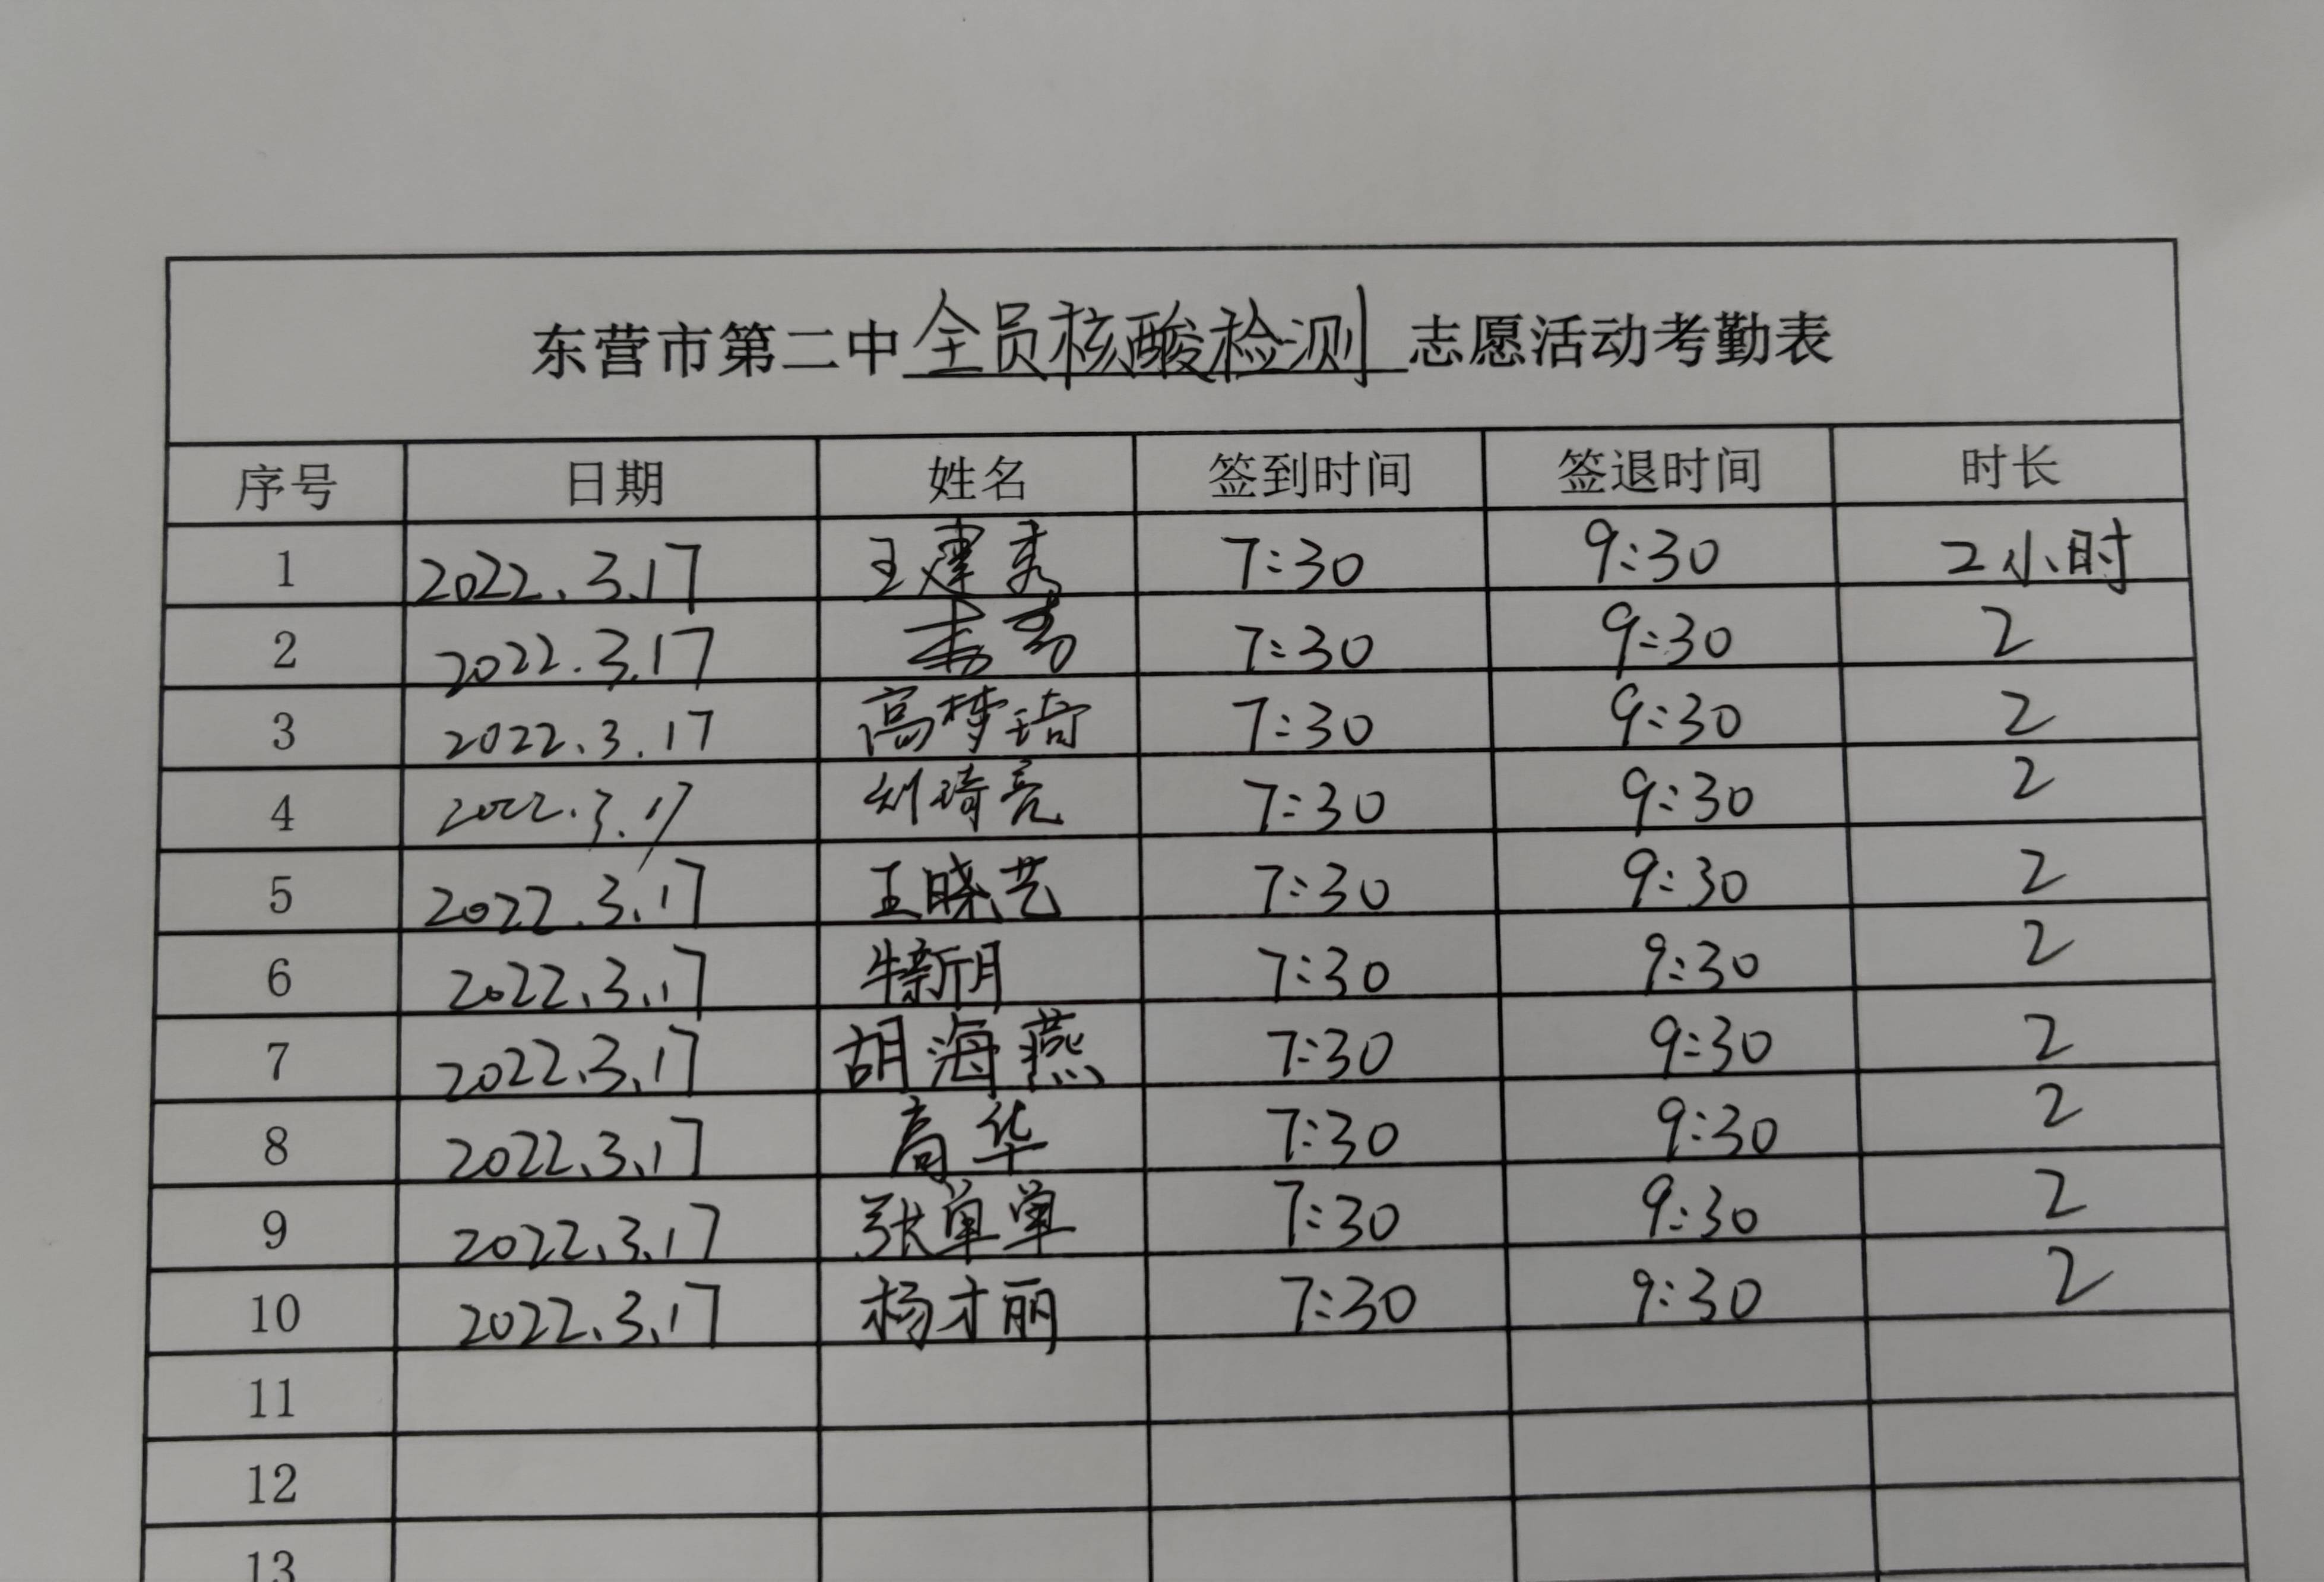 东营市第二中全员核酸检测志愿活动考勤表
序号 日期 姓名 签到时间 签退时间 时长
1 2022.3.17 王建秀 7:30 9:30 2小时
2 2022.3.17 7:30 9:30 2
3 2022.3.17 高梦琦 7:30 9:30 2
4 2022.3.17 刘琦亮 7:30 9:30 2
5 2022.3.17 王晓艺 7:30 9:30 2
6 2022.3.17 牛新月 7:30 9:30 2
7 2022.3.17 胡海燕 7:30 9:30 2
8 2022.3.17 高华 7:30 9:30 2
9 2022.3.17 张单单 7:30 9:30 2
10 2022.3.17 杨才丽 7:30 9:30 2
11
12
13